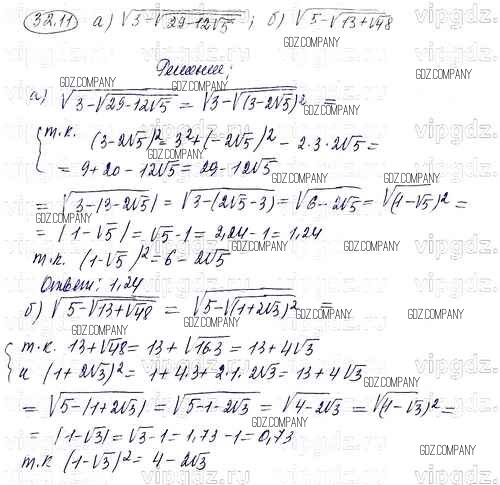 32.11 а) √(3-√(29-12√5)); б) √(5-√(13+√48))
Решение:
а) √(3-√(29-12√5)) = √(3-√(3-2√5)²) =
{ т.к. (3-2√5)² = 3²+(-2√5)² - 2·3·2√5 =
= 9+20-12√5 = 29-12√5
= √(3-|3-2√5|) = √(3-(2√5-3)) = √(6-2√5) = √(1-√5)² =
= |1-√5| = √5-1 = 2,24-1 = 1,24
т.к. (1-√5)² = 6=2√5
Ответ: 1,24
б) √(5-√(13+√48)) = √(5-√(1+2√3)²) =
{ т.к. 13+√48 = 13+√16·3 = 13+4√3
и (1+2√3)² = 1+4·3+2·1·2√3 = 13+4√3
= √(5-|1+2√3|) = √(5-1-2√3) = √(4-2√3) = √(1-√3)² =
= |1-√3| = √3-1 = 1,73-1 = 0,73
т.к (1-√3)² = 4-2√3